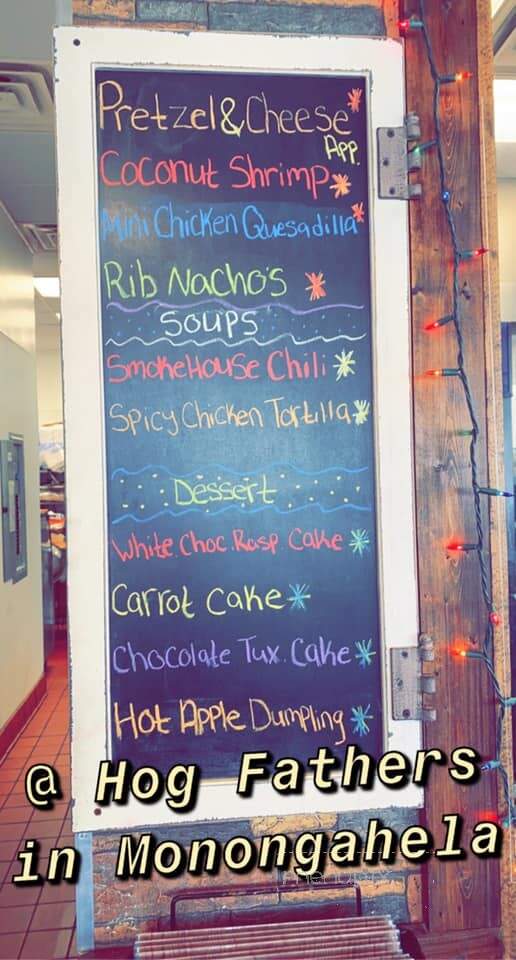 Pretzel & Cheese*
App.
Coconut Shrimp*
Mini Chicken Quesadilla*
Rib Nacho's *
Soups
SmokeHouse Chili *
Spicy Chicken Tortilla*
Dessert
White Choc. Rasp Cake *
Carrot Cake *
Chocolate Tux. Cake *
Hot Apple Dumpling *
@ Hog Fathers
in Monongahela